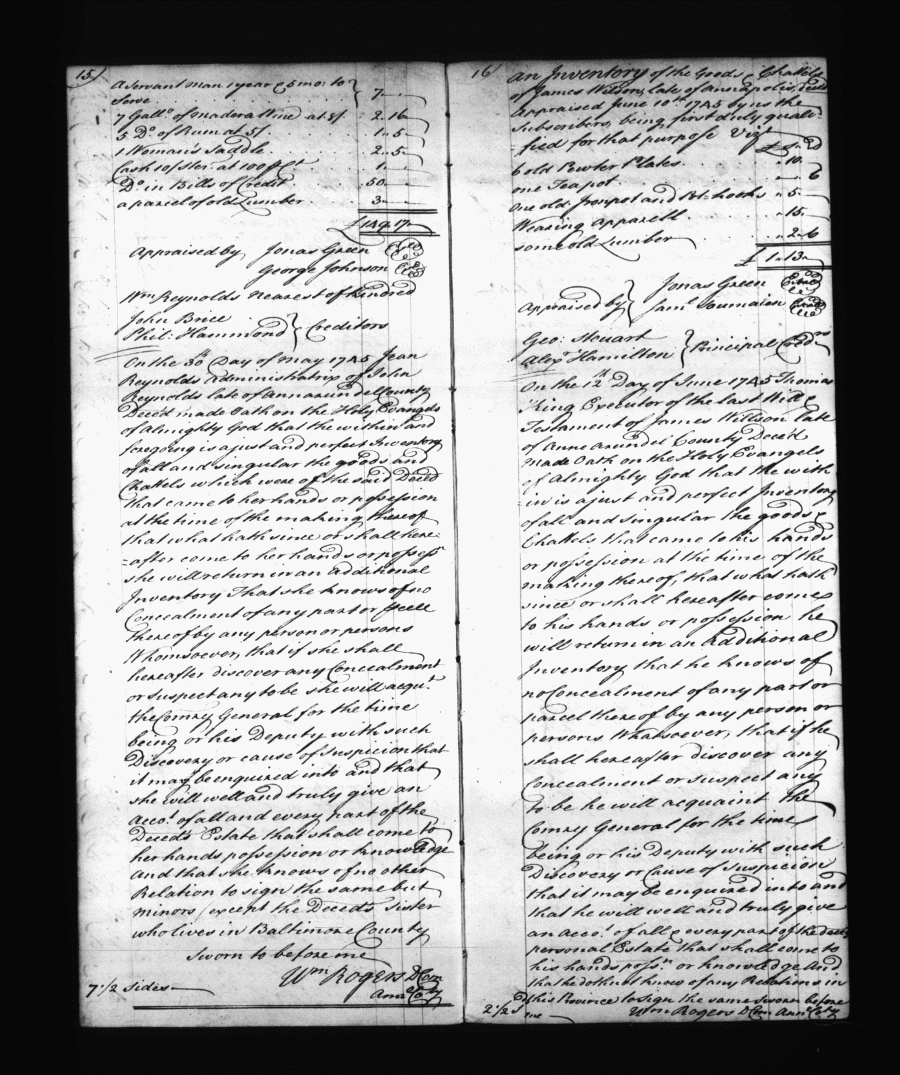 15/
A Servant Man 1 year & 5 mo: to
Serve . . . 7 " "
7 Gall.s of Madera Wine at 8/. " 2 . 16
5 D.o of Rum at 5/. " 1 " 5
1 Woman's Saddle . . . 2 " 5
Cash 10/ Ster. at 100 P Ct . . 1 " "
D.o in Bills of Credit . . 50 " "
a parcel of old Lumber . . . 3 " "
£ 149. 17 "
Appraised by Jonas Green
George Johnson
Wm Reynolds nearest of kindred
John Brice
Phil: Hammond } Creditors
On the 30th Day of May 1745 Jean
Reynolds Administratrix of John
Reynolds late of Annarundell County
Deced made Oath on the Holy Evangels
of Almighty God that the within and
foregoing is a just and perfect Inventory
of all and singular the goods and
Chattels which were of the said Deced
that came to her hands or possession
at the time of the making thereof
that what hath since or shall here=
=after come to her hands or possess.n
she will return in an additional
Inventory That she knows of no
Concealment of any part or
thereof by any person or persons
Whomsoever, that if she shall
hereafter discover any Concealment
or suspect any to be she will acqu.t
the Comry General for the time
being or his Deputy with such
Discovery or cause of Suspicion that
it may be enquired into and that
she will well and truly give an
Acco.t of all and every part of the
Deced's Estate that shall come to
her hands possession or knowledge
and that she knows of no other
Relation to sign the same but
minors (except the Deced's Sister
who lives in Baltimore County
Sworn to before me
Wm Rogers D Com
Anna Co.ty
7 1/2 Sides
16/
An Inventory of the Goods & Chattels
of James Wilson, late of Annapolis, deced
Appraised June 10th 1745 by us the
Subscribers, being first duly quali=
=fied for that purpose Vizt
£ S D
6 old Pewter Plates . . . " 10 "
one Teapot . . . " " 6
One old Ironpot and Pot-hooks " 5 "
Wearing Apparell . . . " 15 "
some old Lumber . . . " 2 " 6
£ 1 " 13 "
Appraised by { Jonas Green
Saml Soumaien
Geo: Steuart
Alexr Hamilton } Principal Credrs
On the 12th Day of June 1745 Thomas
King Executor of the last Will &
Testament of James Willson late
of Anne arundel County Dece'd
made Oath on the Holy Evangels
of Almighty God that the with
=in is a just and perfect Inventory
of all and singular the goods &
Chattels that came to his hands
or possession at the time of the
making thereof, that what hath
since or shall hereafter come
to his hands or possession he
will return in an additional
Inventory that he knows of
no Concealment of any part or
parcel thereof by any person or
persons Whatsoever, that if he
shall hereafter discover any
Concealment or suspect any
to be he will acquaint the
Comry General for the time
being or his Deputy with such
Discovery or Cause of Suspicion
that it may be enquired into and
that he will well and truly give
an Acco.t of all & every part of the deced's
personal Estate that shall come to
his hands poss.n or knowledge And
that he doth not know of any Relations in
this Province to sign the same Sworn before
me Wm Rogers D Com Ann Co.ty
2 1/2 S